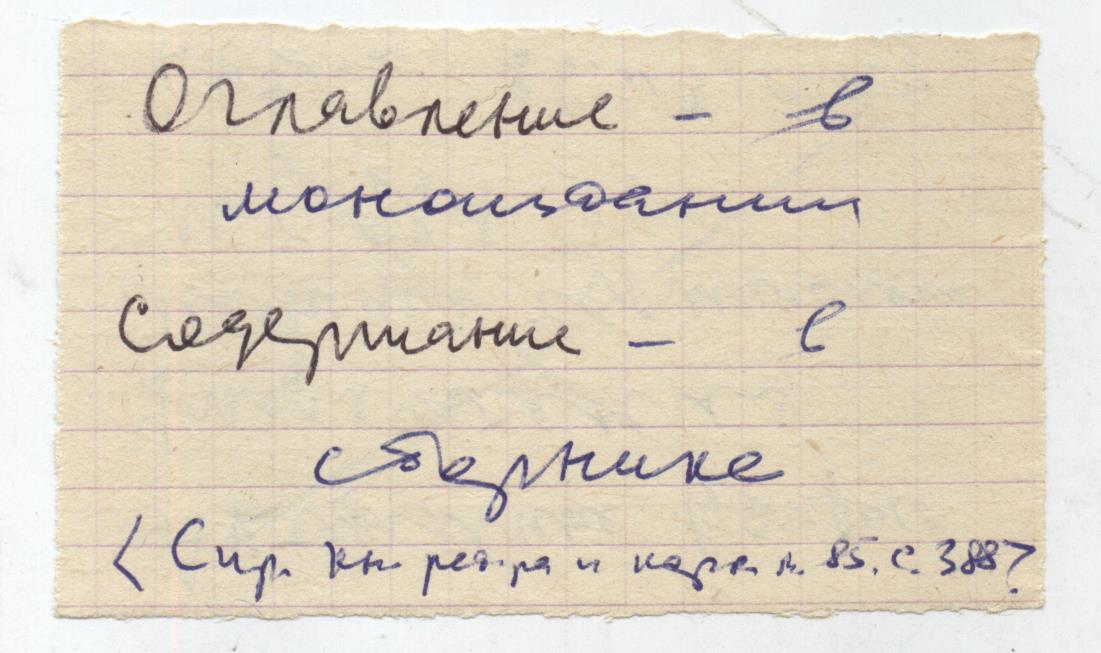 Оглавление – в
моноиздании
Содержание – в
сборнике
<Спр. кн. ред-ра и корр. М. 85. С. 388>